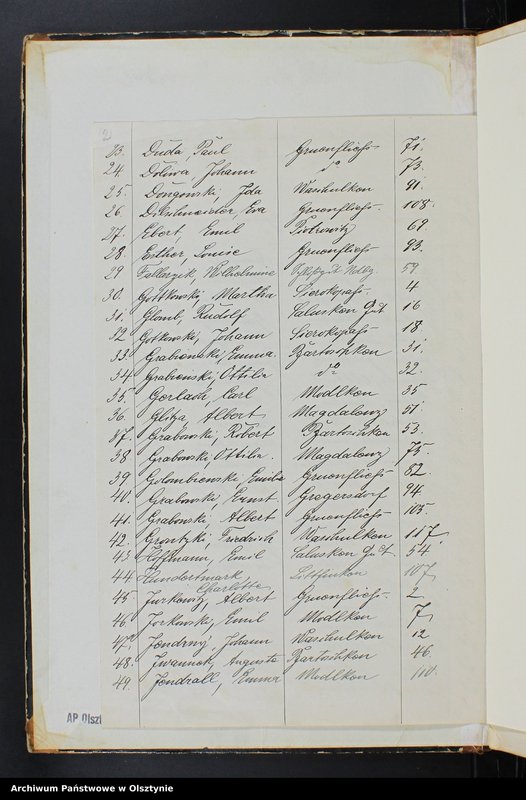 2
23. Duda, Paul Gruenfliess 71.
24. Doliwa, Johann do 73.
25 Dongowski, Ida Waschulken 91.
26. Drischneider, Eva Gruenfliess. 108.
27. Ebert, Emil Piotrowitz 69.
28. Esther, Louise Gruenfliess 93.
29 Wilhelmine 59.
30. Gottkowski, Martha Sierokopass. 4
31. Glomb, Rudolf Salusken Gut 16
32 Gotkowski, Johann Sierokopass. 18.
33 Grabowski, Emma. Bartoschken 31.
34 Grabowski, Ottilie do 32.
35 Gerlach, Carl Modlken 35
36. Glitza, Albert Magdalenz 51.
37. Grabowski, Robert Bartoschken 53.
38 Grabowski Ottilie. Magdalenz 75.
39 Golombienski, Emilie Gruenfliess 82
40 Grabowski, Ernst Gregersdorf 94.
41. Grabowski, Albert Gruenfliess 105.
42. Friedrich Waschulken 117.
43 Hoffmann, Emil Saluskon Gut 54
44 Hundertmark Charlotte Littfinken 107
45 Jurkowitz, Albert Gruenfliess. 2
46. Jorkowski, Emil Modlken 7
47. Jendrny, Johann Waschulken 12
48. Iwannek, Auguste Bartoschken 46.
49. Jendrall, Emma Modlken 110.
AP Olszt
Archiwum Państwowe w Olsztynie